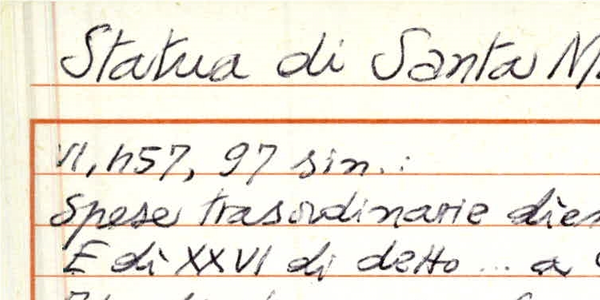 Statua di Santa M
VI, h57, 97 sin.:
Spese trasordinarie dien
E dì XXVI di detto ... a